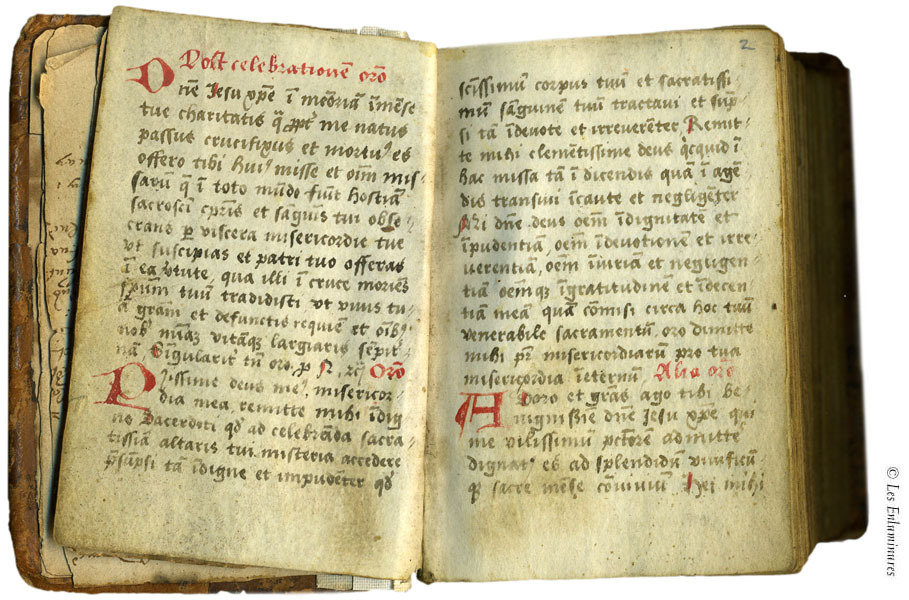 Post celebrationē orō
Dne Jesu xpe ī memoriā īmēse
tue charitatis q̄ ppt' me natus
passus crucifixus et mortu' es
offero tibi hui' misse et oīm mis-
sarū q̄ ī toto mūdo fiūt hostiā
sacrosci cprīs et sāguīs tui obse-
crans p viscera misericordie tue
vt suscipias et patri tuo offeras
ī ea v'tute, qua illi ī cruce moriēs
spūm tuū tradidisti vt viuis tu-
ā grām et defunctis requiē et oīb'
nob' vitāq largiaris sēpit'
nā. Singularit' tn̄ oro. p N. Orō
Piissime deus me', misericor-
dia mea, remitte mihi īdig
no Sacerdoti qd' ad celebrāda sacra-
tissimā altaris tui misteria accedere
p̄sūpsi tā īdigne et impudēter qd'
2
sctissimū corpus tuū et sacratissi-
mū sāguinem tuū tractaui et sūp-
si tā īdevote et irreverēter Remit-
te mihi clemētissime deus qcquid ī
hac missa tā ī dicendis quā ī agē
dis transiui īcaute et negligēter
dne deus oēm īdignitatē et
īpudentiā, oēm īdevotionē et irre-
uerentiā, oēm īiuriā et negligen-
tiā oēmq īgratitudinē et īdecen
tiā meā quā cōmisi circa hoc tuū
venerabile sacramentū. oro dimitte
mihi pr misericordiarū pro tua
misericordia īeternū. Alia orō
Adoro et grās ago tibi be-
nignissīe dne Jesu xpe qui
me vilissimū pctorē admitte
dignat' es ad splendidū viuificū
q sacre mēse cōuiuiū Hei mihi
© Les Enluminures